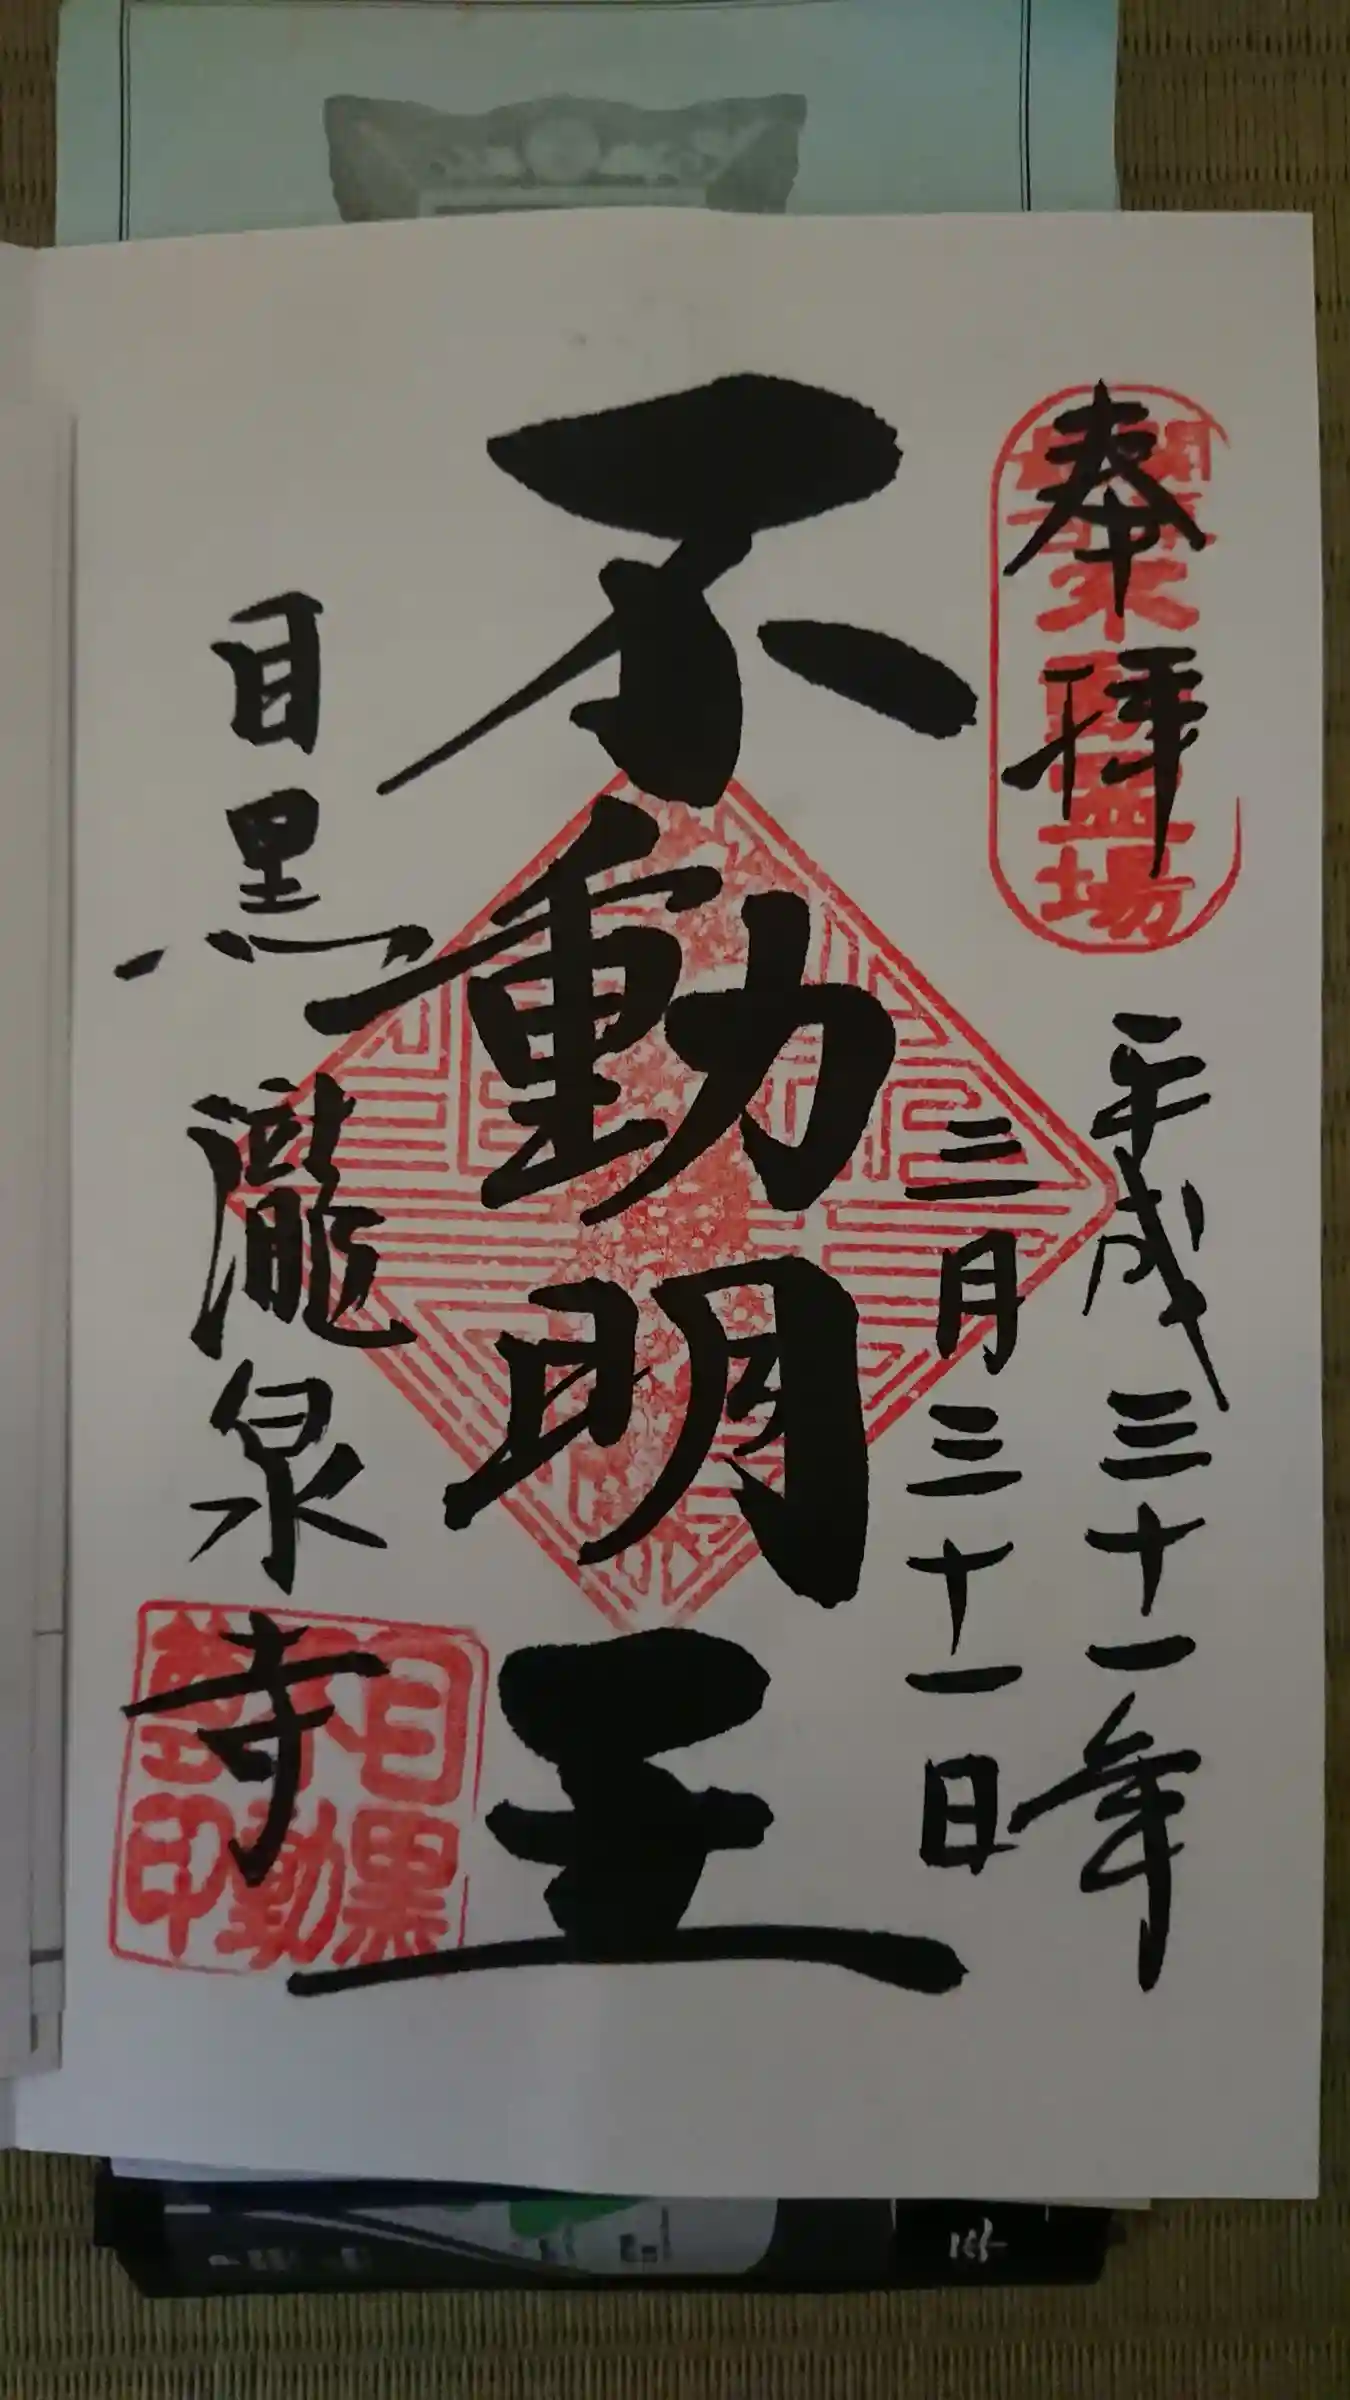 奉拝
平成三十一年
三月三十一日
不動明王
目黒 瀧泉寺
関東最古
霊場
目黒
不動
印